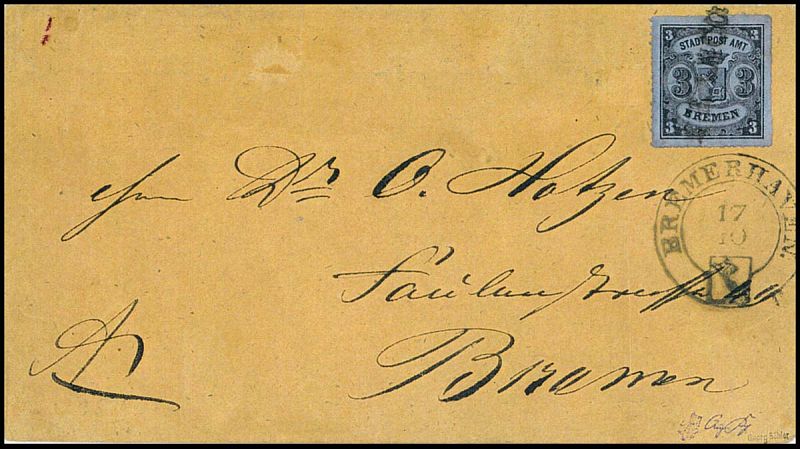 3 3
STADT POST AMT
3 3
BREMEN
3 3
BREMERHAVEN
17
10
Herrn Dr O. Hotzen
Bremen
Georg Bühler